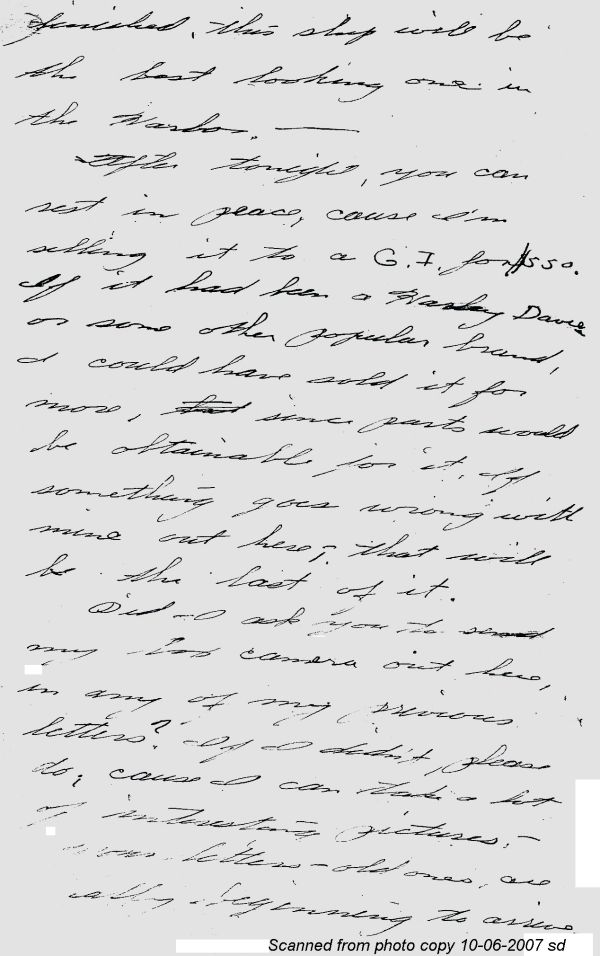 finished, this ship will be
the best looking one in
the Harbor. —
After tonight, you can
rest in peace, cause I'm
selling it to a G.I. for $550.
If it had been a Harley Davis
or some other popular brand,
I could have sold it for
more, since parts would
be obtainable for it. If
something goes wrong with
mine out here, that will
be the last of it.
Did I ask you to send
my camera out here,
in any of my previous
letters? If I didn't, please
do, cause I can take a lot
of interesting pictures. –
your letters – old ones, are
beginning to arrive
Scanned from photo copy 10-06-2007 sd